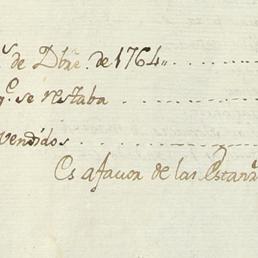 s de Dbre. de 1764,, . . . . . .
q.e se restaba . . . . . . .
vendidos . . . . . . . .
Es afavor de las Estan